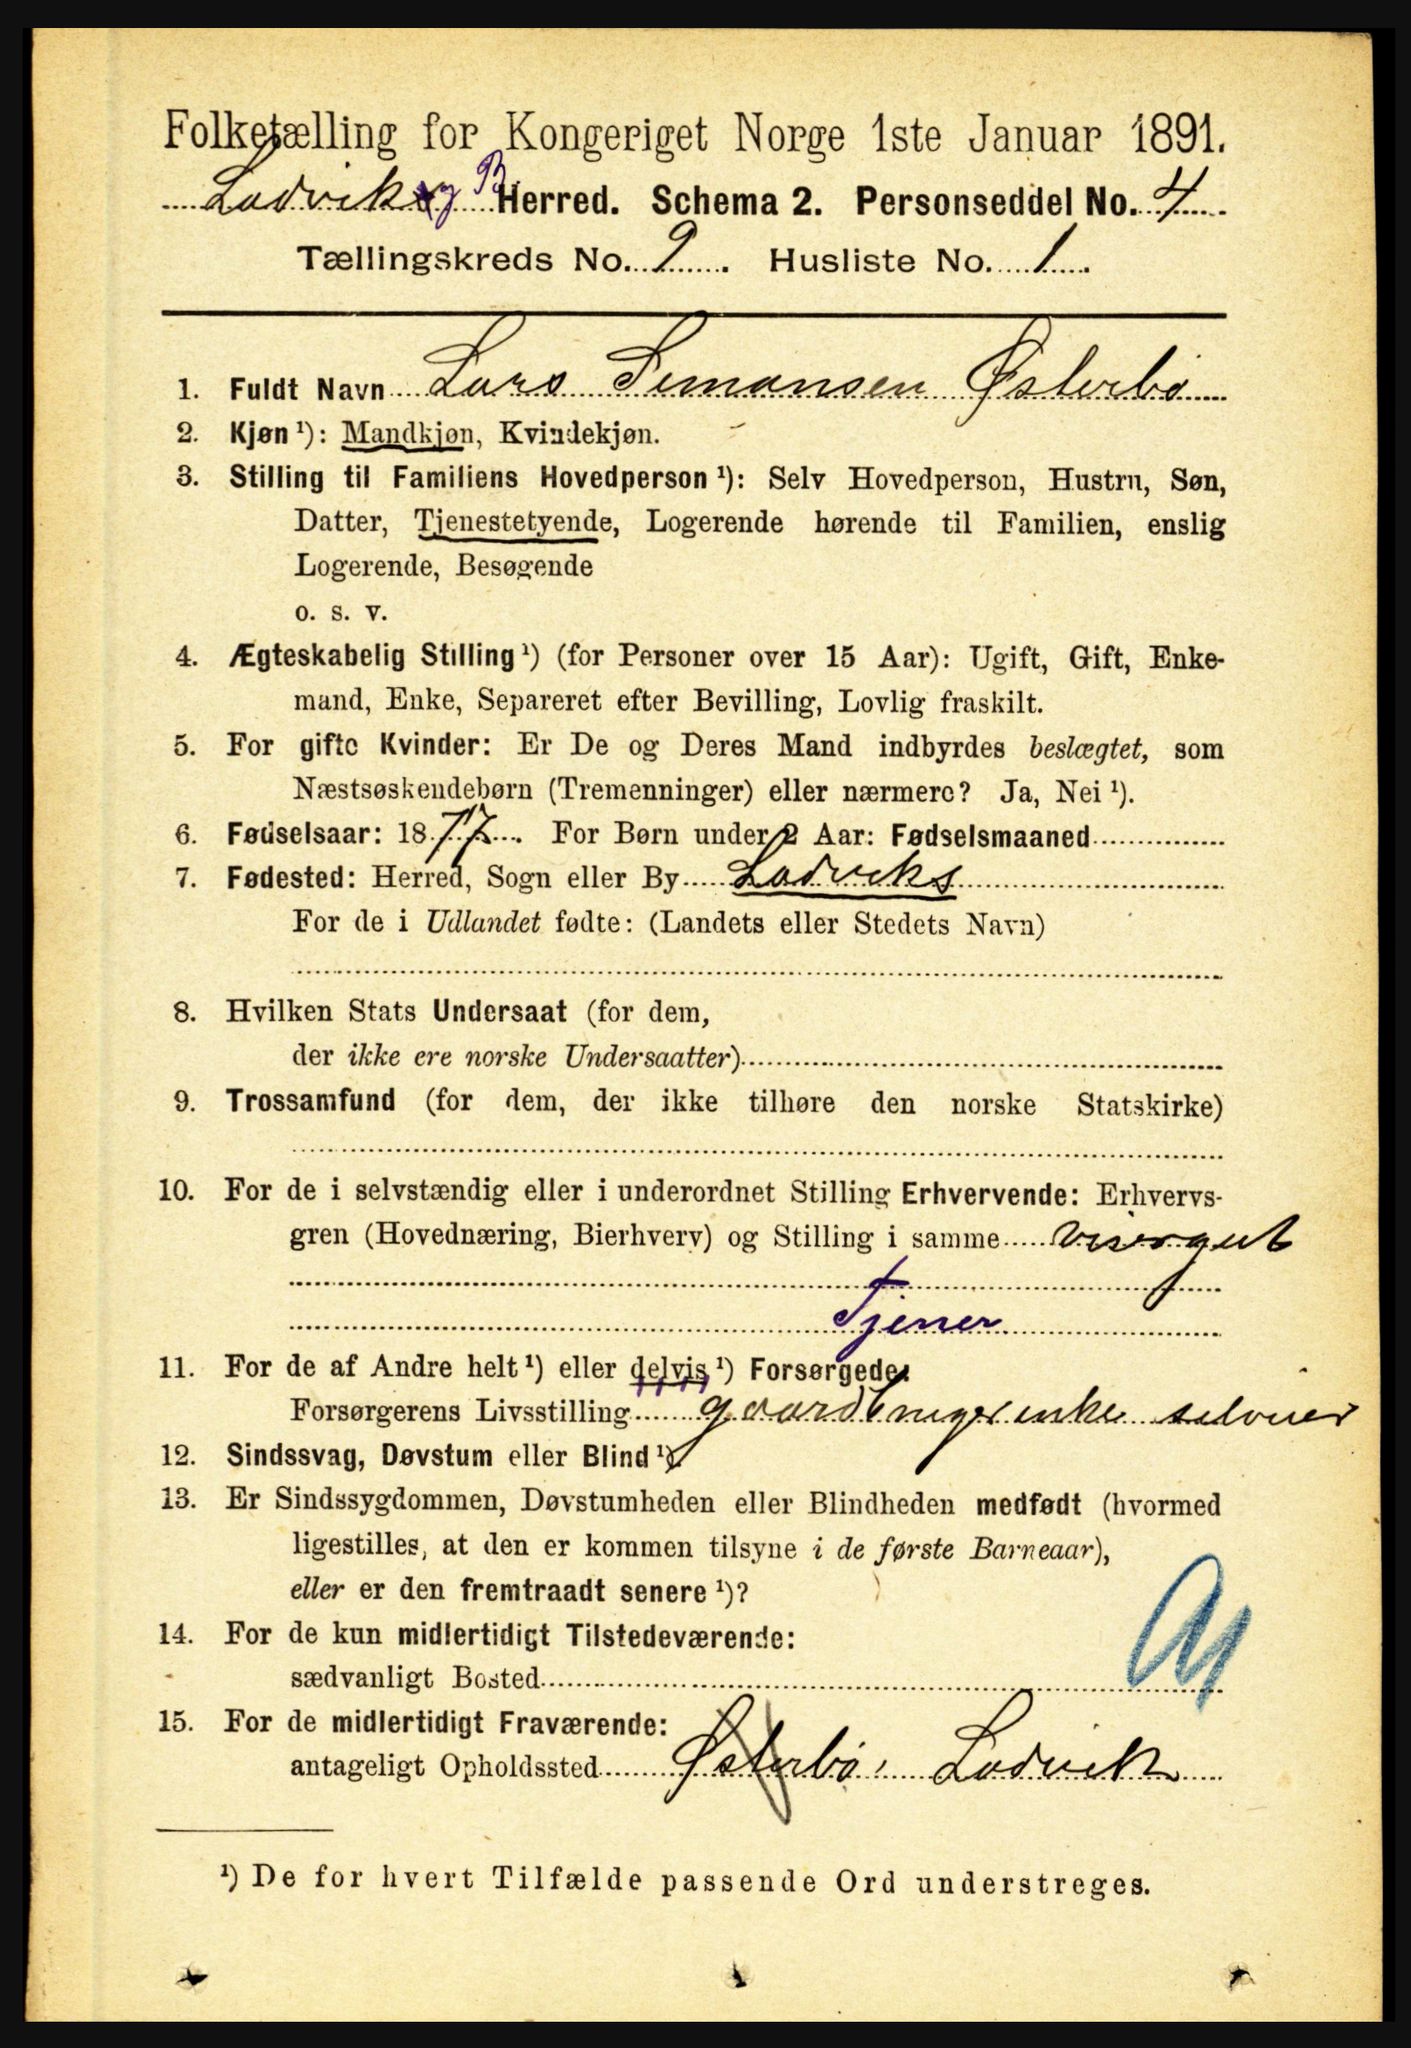 Folketælling for Kongeriget Norge 1ste Januar 1891.
Ladvik og B. Herred. Schema 2. Personseddel No. 4
Tællingskreds No. 9. Husliste No. 1.
1. Fuldt Navn Lars Simonsen Østerbø
2. Kjøn ¹): Mandkjøn, Kvindekjøn.
3. Stilling til Familiens Hovedperson ¹): Selv Hovedperson, Hustru, Søn,
Datter, Tjenestetyende, Logerende hørende til Familien, enslig
Logerende, Besøgende
o. s. v.
4. Ægteskabelig Stilling ¹) (for Personer over 15 Aar): Ugift, Gift, Enke-
mand, Enke, Separeret efter Bevilling, Lovlig fraskilt.
5. For gifte Kvinder: Er De og Deres Mand indbyrdes beslægtet, som
Næstsøskendebørn (Tremenninger) eller nærmere? Ja, Nei ¹).
6. Fødselsaar: 1877. For Børn under 2 Aar: Fødselsmaaned
7. Fødested: Herred, Sogn eller By Ladviks
For de i Udlandet fødte: (Landets eller Stedets Navn)
8. Hvilken Stats Undersaat (for dem,
der ikke ere norske Undersaatter)
9. Trossamfund (for dem, der ikke tilhøre den norske Statskirke)
10. For de i selvstændig eller i underordnet Stilling Erhvervende: Erhvervs-
gren (Hovednæring, Bierhverv) og Stilling i samme visergut
Tjener
11. For de af Andre helt ¹) eller delvis ¹) Forsørgede:
Forsørgerens Livsstilling gaardbrugerenke selveier
12. Sindssvag, Døvstum eller Blind ¹).
13. Er Sindssygdommen, Døvstumheden eller Blindheden medfødt (hvormed
ligestilles, at den er kommen tilsyne i de første Barneaar),
eller er den fremtraadt senere ¹)?
14. For de kun midlertidigt Tilstedeværende:
sædvanligt Bosted
15. For de midlertidigt Fraværende:
antageligt Opholdssted Østerbø, Ladvik
¹) De for hvert Tilfælde passende Ord understreges.